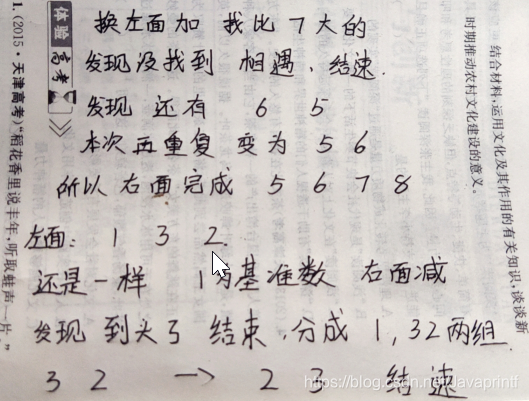 换左面加 找比7大的
发现没找到 相遇、结速.
发现 还有 6 5
本次再重复 变为 5 6
所以右面完成 5 6 7 8
左面: 1 3 2.
还是一样 1为基准数 右面减
发现 到头了 结束.分成 1, 32两组.
3 2 —> 2 3 结速
体验高考
1.(2015·天津高考)“稻花香里说丰年,听取蛙声一片。”
结合材料,运用文化及其作用的有关知识,谈谈新
时期推动农村文化建设的意义。
https://blog.csdn.net/Javaprintf